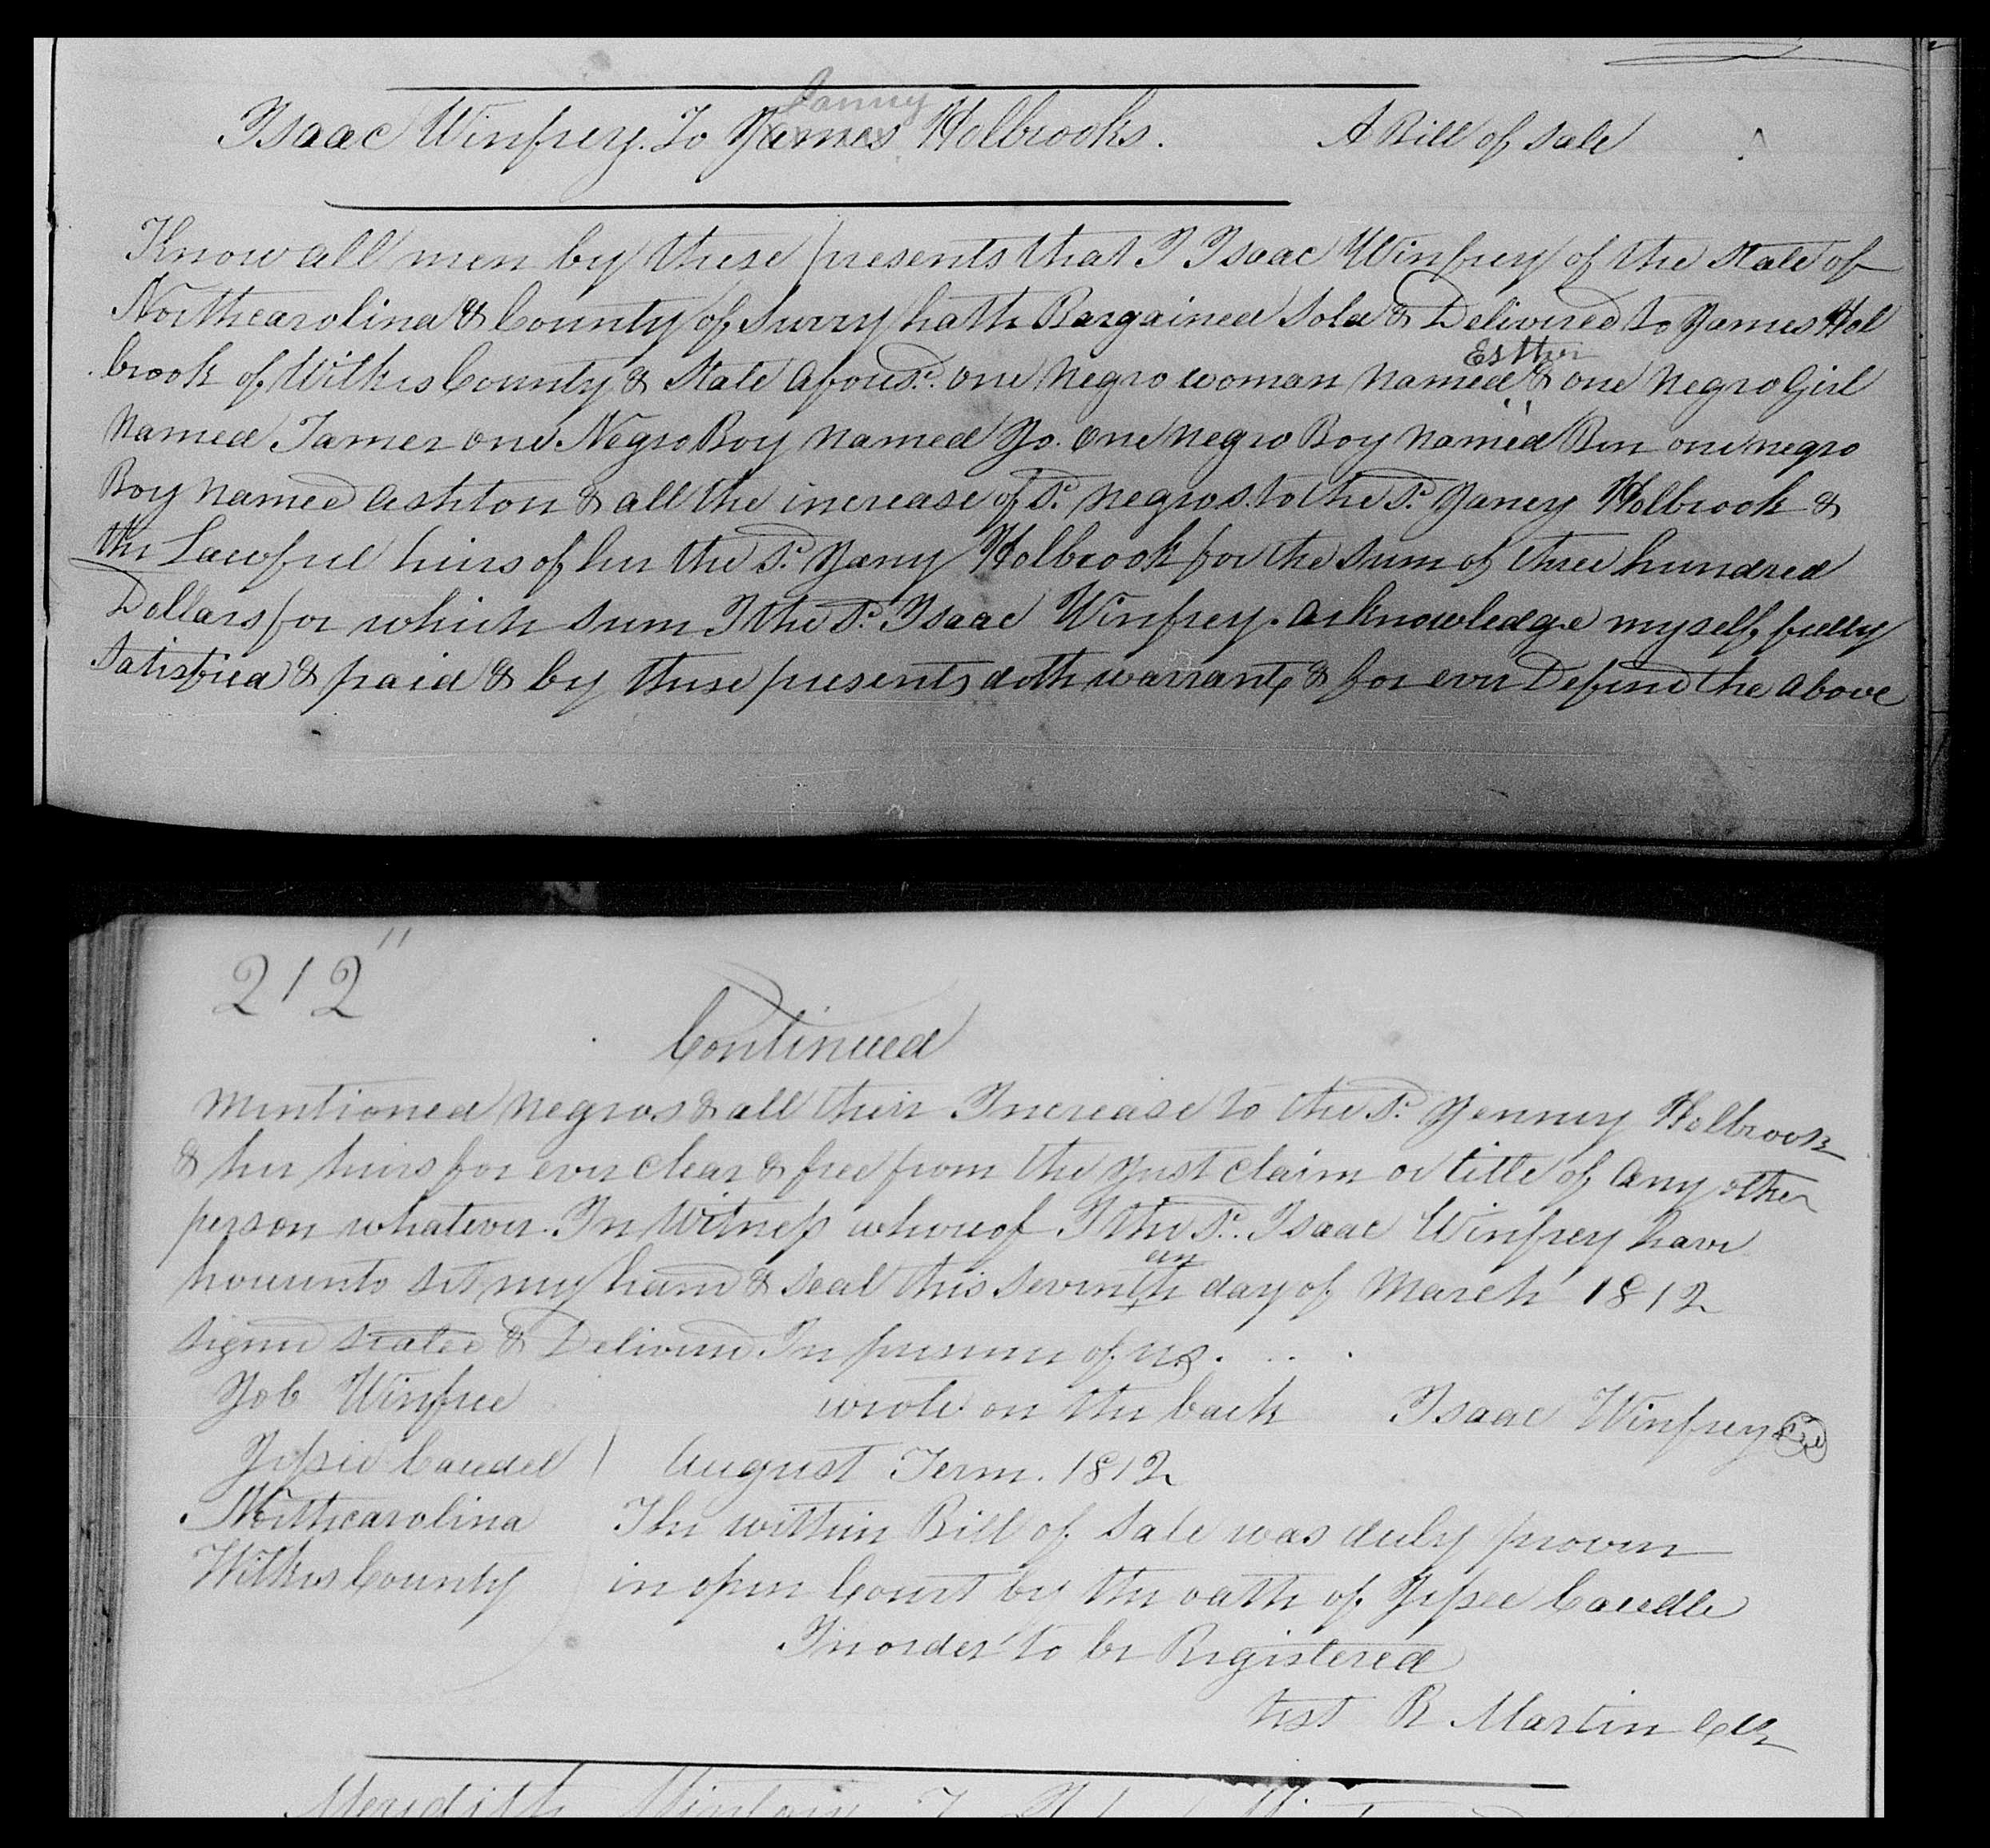 Janny
Isaac Winfrey. To James Holbrooks. A Bill of Sale
Know all men by these presents that I Isaac Winfrey of the State of
Northcarolina & County of Surry hath Bargained Sold & Delivered to James Hol
brook of Wilkes County & State afousd. one Negro woman Named Esther & one Negro Girl
Named Tamer one Negro Boy Named Jo. one negro Boy Named Ben one negro
Boy Named Ashton & all the increase of sd. Negros. to the sd. Janey Holbrook &
the Lawful heirs of her the sd. Jany Holbrook for the sum of three hundred
Dollars for which sum I the sd. Isaac Winfrey. acknowledge myself fully
Satisfied & paid & by these presents doth warrant & for ever Defend the above
212"
Continued
mentioned negros & all their Increase to the sd. Jenney Holbrook
& her heirs for ever clear & free from the Just claim or title of any other
person whatever. In Witness whereof I the sd. Isaac Winfrey have
hereunto set my hand & seal this Seventeenth day of March 1812
Signed Sealed & Delivered In presence of us. . . .
Job Winfree wrote on the back Isaac Winfrey Seal
Jessee Caudel August Term. 1812
Northcarolina The within Bill of Sale was duly proven
Wilkes County in open Court by the oath of Jessee Caudle
In order to be Registered
test R Martin Clk